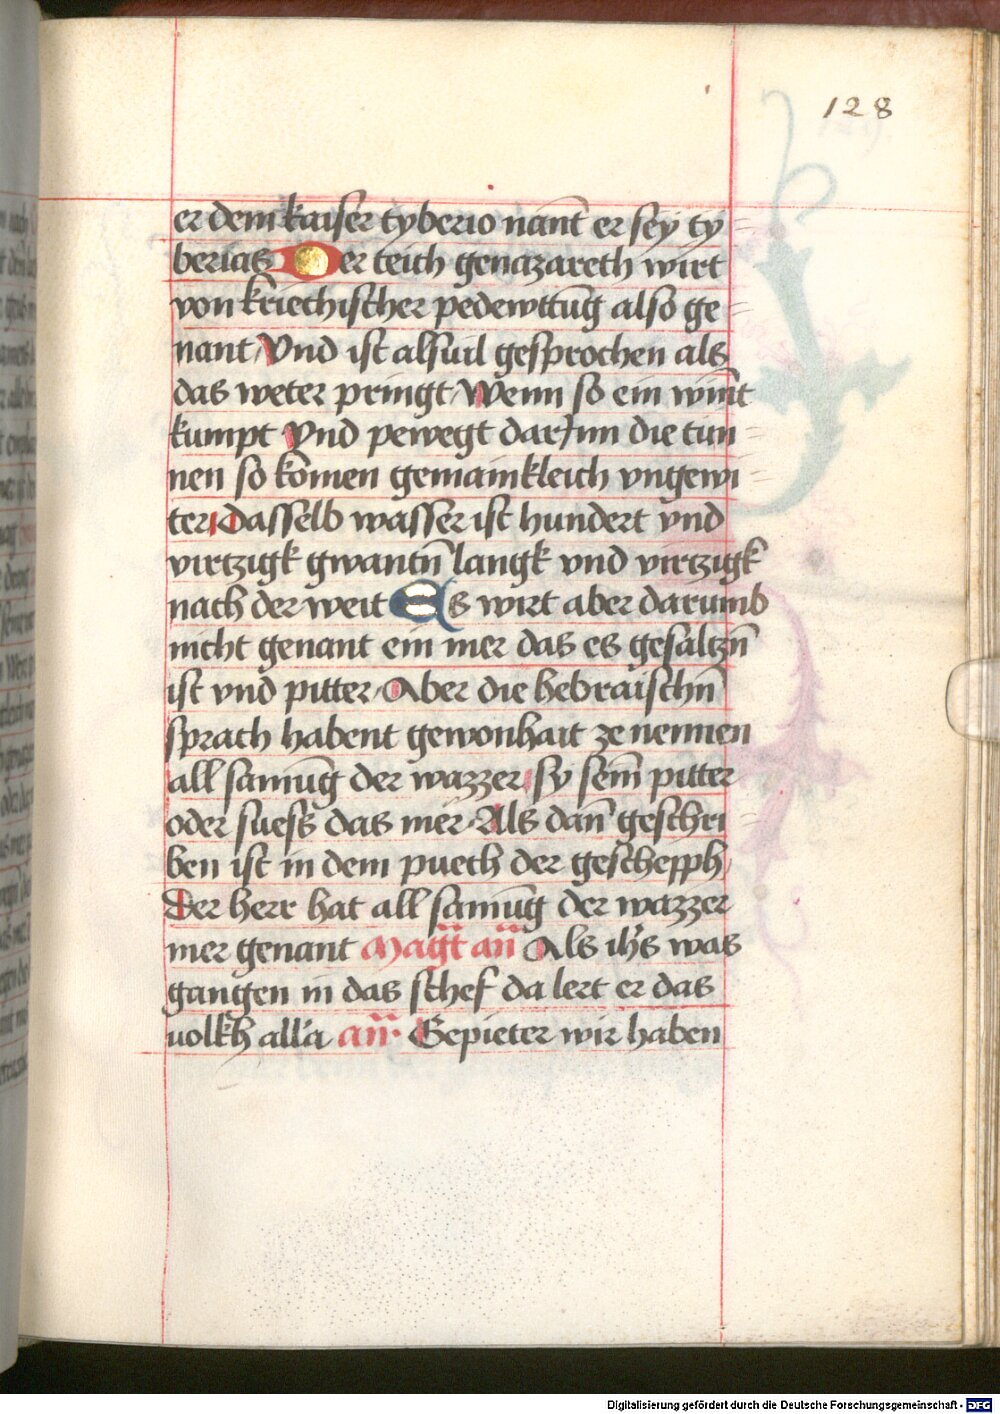 128
er dem kaiser tyberio nant̄ er sey ty
berias Der teich genazareth wirt
von kriechischer pedewttūg also ge
nant Vnd ist alsuil gesprochen als
das weter pringt Wenn so ein win̄t
kumpt Vnd pewegt darJnn die tün
nen so kōmen gemainkleich vngewi
ter Dasselb wasser ist hundert vnd
virtzigk gwantn̄ langk vnd virtzigk
nach der weit Es wirt aber darumb
nicht genant ein mer das es gesaltzn̄
ist vnd pitter Aber die hebraischn̄
sprach habent gewonhait ze nennen
all samūg der wazzer sy sein̄ pitter
oder suess das mer Als dan̄ geschri
ben ist in dem puech der geschepph
Der herr hat all samūg der wazzer
mer genant Magt̄ an̄ Als ih̄s was
gangen in das schef da lert er das
volkh all'a an̄ Gepieter wir haben
Digitalisierung gefördert durch die Deutsche Forschungsgemeinschaft - DFG